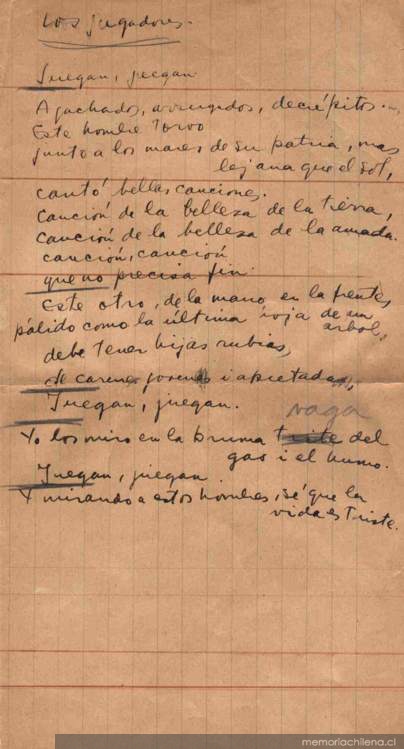 Los jugadores.
Juegan, juegan
Agachados, arrugados, decrépitos.
Este hombre torvo
junto a los mares de su patria, mas
lejana que el sol,
cantó bellas canciones.
Canción de la belleza de la tierra,
canción de la belleza de la amada.
canción, canción
que no precisa fin.
Este otro, de la mano en la frente,
pálido como la última oja de un
arbol,
debe tener hijas rubias,
de carne joven i apretada,
Juegan, juegan.
vaga
Yo los miro en la bruma triste del
gas i el humo.
Juegan, juegan.
Y mirando a estos hombres, sé que la
vida es triste.
memoriachilena.cl